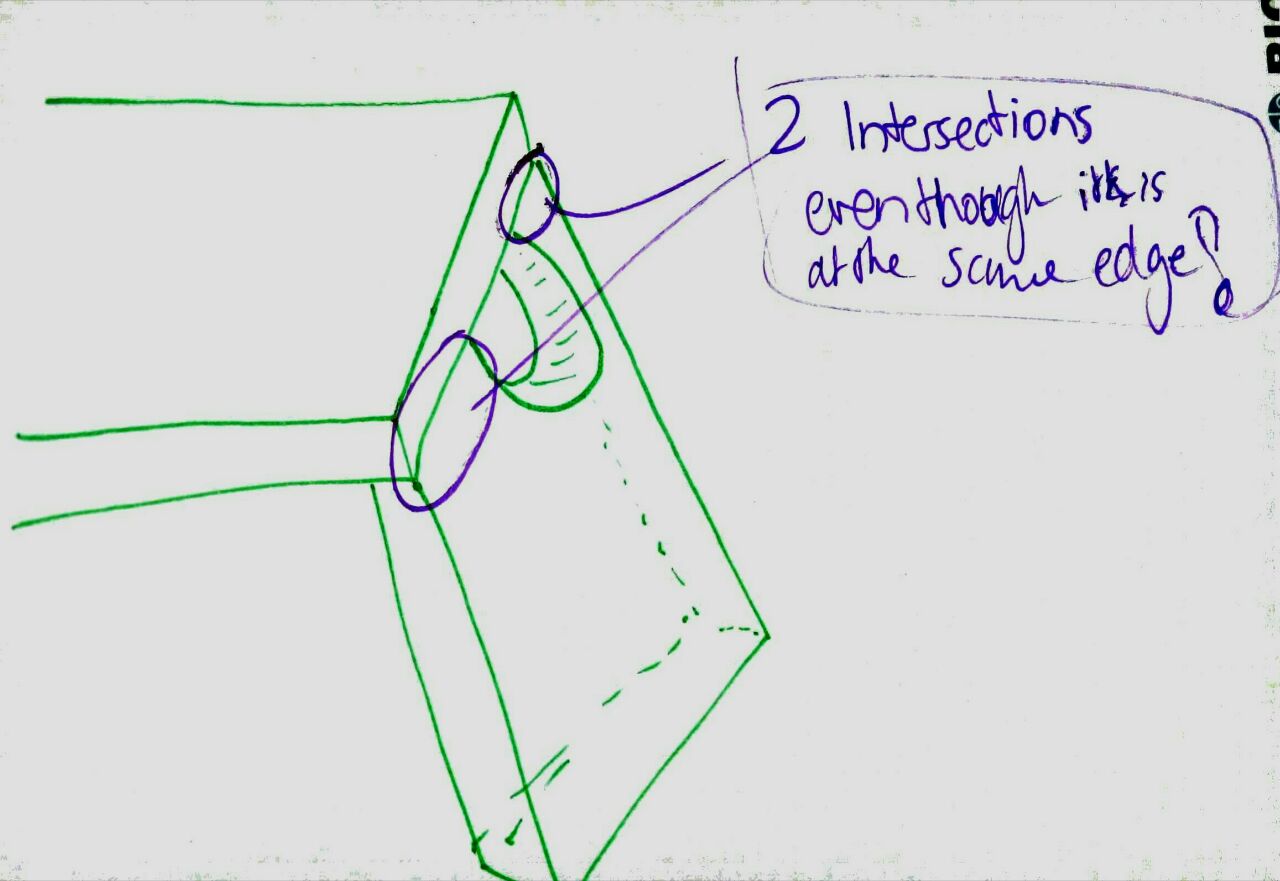 2 Intersections
even though it is
at the same edge!
BIC